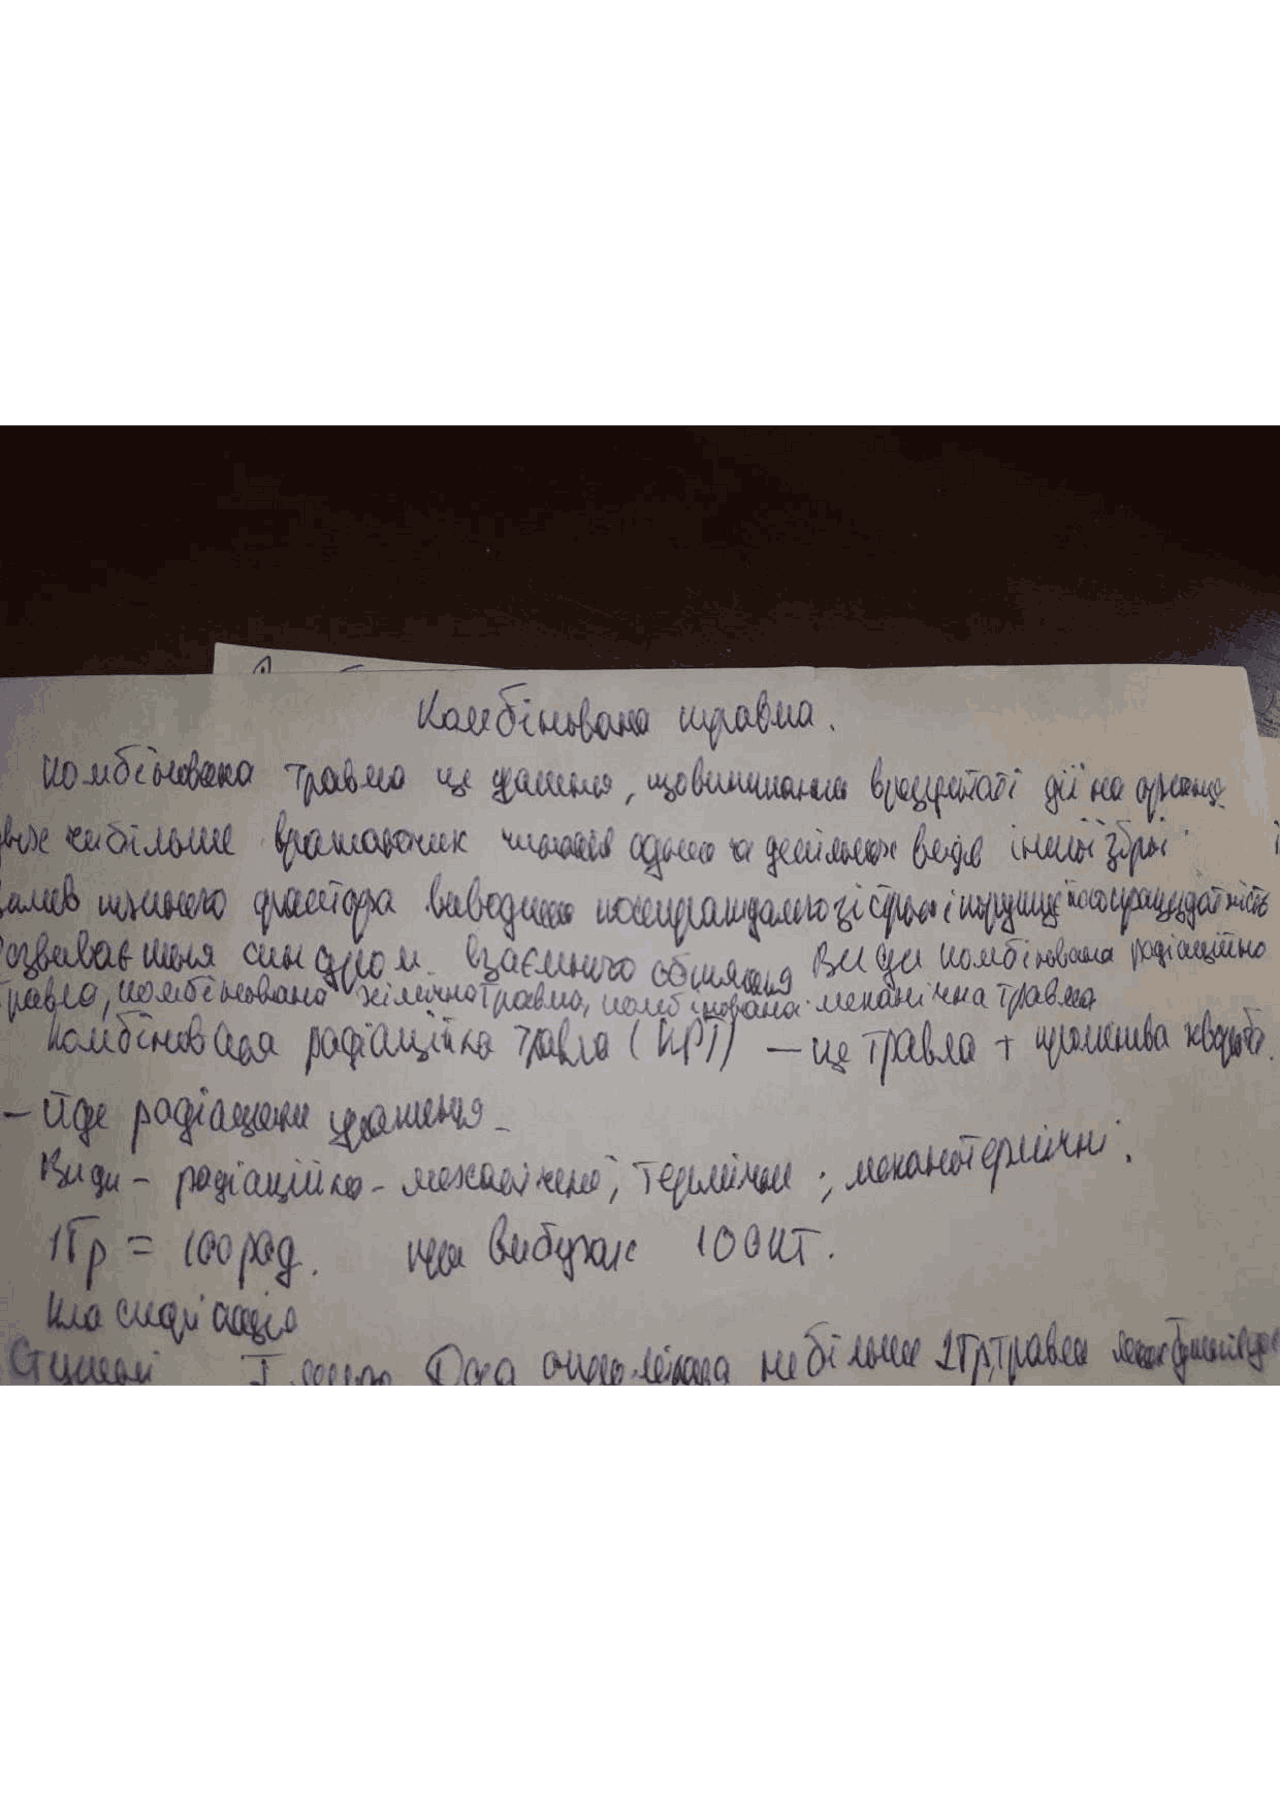 Комбінована травма.
Комбінована травма це ураження, що виникання в результаті дії на організм
двох чи більше вражаючих чинників одного чи декількох видів іншої зброї
кожного фактора виводить постраждалого зі строю і порушує його працездатність
Розвивається синдром взаємного обтяження Види комбінована радіаційно
травма, комбінована хімічна травма, комбінована механічна травма
Комбінована радіаційна травма (КРТ) – це травма + променева хвороба.
– йде радіаційне ураження
Види – радіаційно-механічні, термічні; механотермічні.
1Гр = 100рад. при вибухах 100кТ.
Класифікація
Ступені I Доза опромінення не більше 2Гр, травма